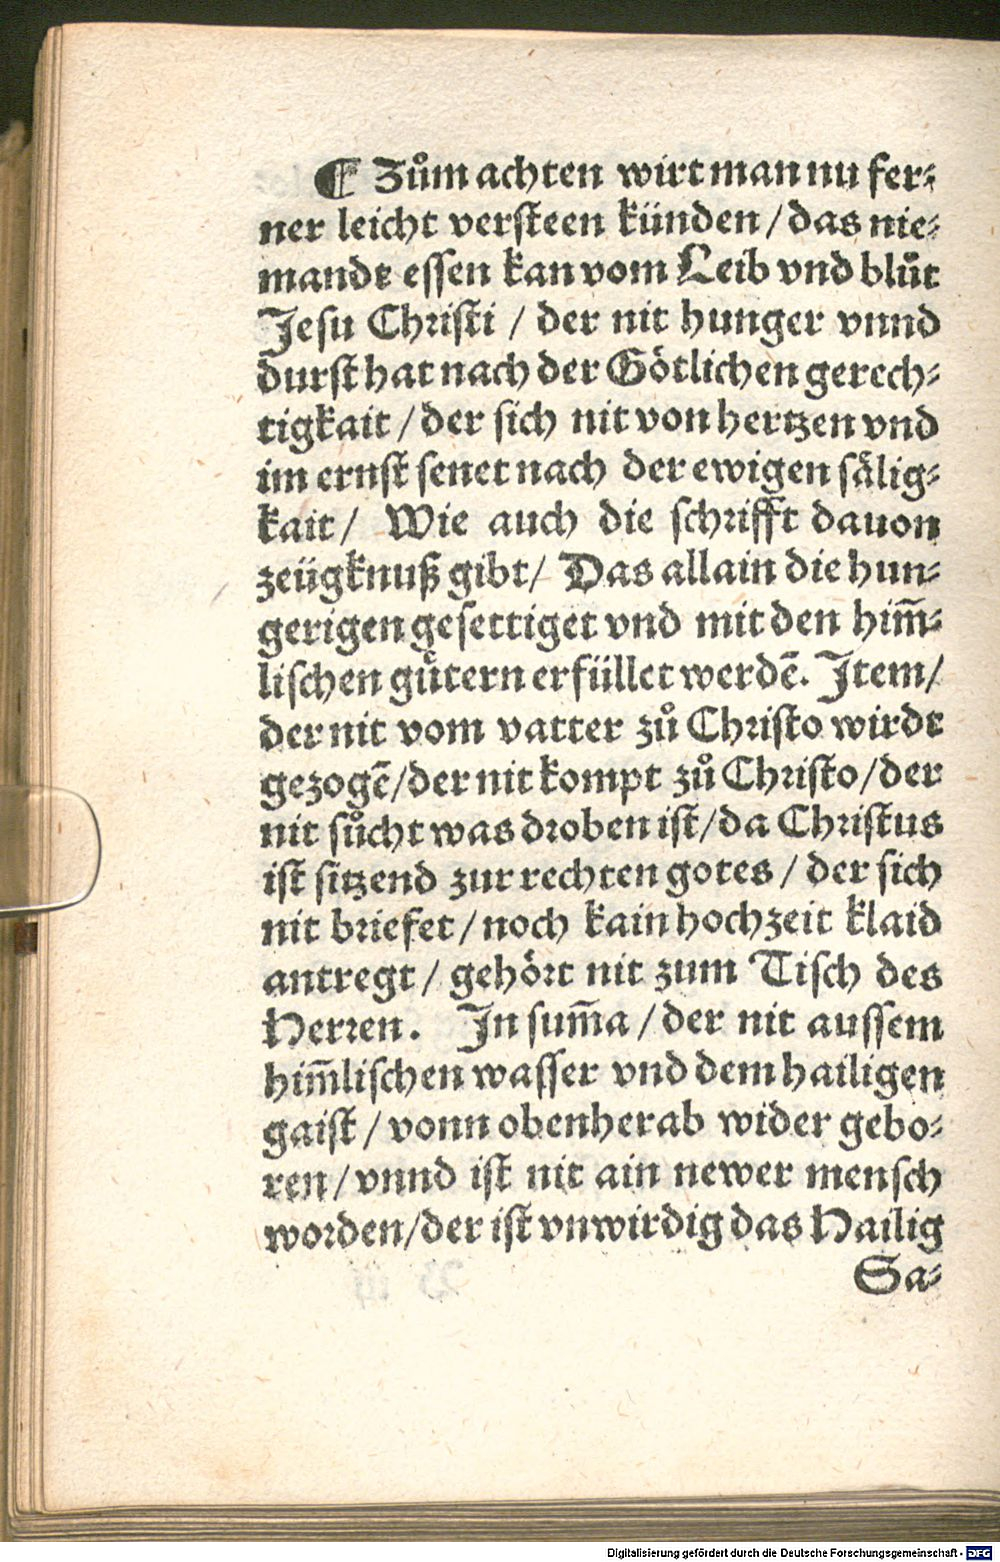 ¶ Zům achten wirt man nu fer⸗
ner leicht verſteen künden / das nie⸗
mandt eſſen kan vom Leib vnd blůt
Jeſu Chꝛiſti / der nit hunger vnnd
durſt hat nach der Götlichen gerech⸗
tigkait / der ſich nit von hertzen vnd
im ernſt ſenet nach der ewigen ſälig⸗
kait / Wie auch die ſchꝛifft dauon
zeügknuß gibt / Das allain die hun⸗
gerigen geſettiget vnd mit den him̃⸗
liſchen gůtern erfüllet werdē. Jtem /
der nit vom vatter zů Chꝛiſto wirdt
gezogē / der nit kompt zů Chꝛiſto / der
nit ſůcht was dꝛoben iſt / da Chꝛiſtus
iſt ſitzend zur rechten gotes / der ſich
nit bꝛiefet / noch kain hochzeit klaid
antregt / gehöꝛt nit zum Tiſch des
Herꝛen. Jn ſum̃a / der nit auſſem
him̃liſchen waſſer vnd dem hailigen
gaiſt / vonn obenherab wider gebo⸗
ren / vnnd iſt nit ain newer menſch
woꝛden / der iſt vnwirdig das Hailig
Sa⸗
Digitalisierung gefördert durch die Deutsche Forschungsgemeinschaft - DFG